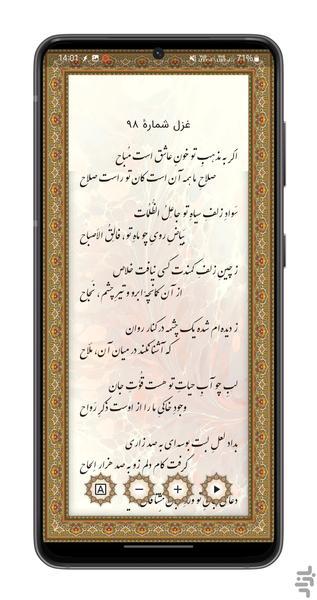 14:01
71%
غزل شمارهٔ ۹۸
اگر به مذهبِ تو خونِ عاشق است مُباح
صلاحِ ما همه آن است کان تو راست صلاح
سَوادِ زلفِ سیاهِ تو جاعِلُ الظُلُمات
بَیاضِ رویِ چو ماهِ تو، فالِقُ الاَصباح
ز چینِ زلفِ کمندت کسی نیافت خلاص
از آن کمانچهٔ ابرو و تیرِ چشم، نجاح
ز دیده‌ام شده یک چشمه در کنار روان
که آشنا نکند در میانِ آن، ملّاح
لبِ چو آبِ حیاتِ تو هست قُوَّتِ جان
وجودِ خاکی ما را از اوست ذکرِ رَواح
بداد لعلِ لبت بوسه‌ای به صد زاری
گرفت کام دلم زو به صد هزار اِلحاح
دعای جانِ تو وردِ زبانِ مشتاقان
A − +
بازار